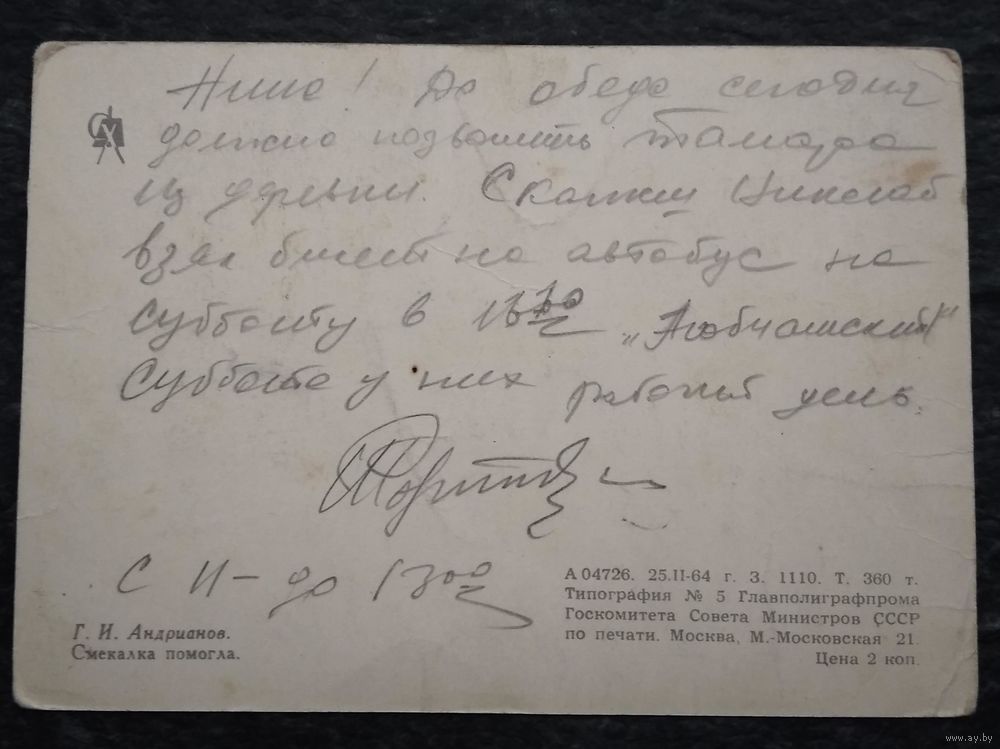 Нина! До обеда сегодня
должна позвонить Тамара
из деревни. Скажи
взял билет на автобус на
субботу в 13
Суббота у них рабочий день.
С 11 – до 13 00
Г. И. Андрианов.
Смекалка помогла.
А 04726. 25.II-64 г. З. 1110. Т. 360 т.
Типография № 5 Главполиграфпрома
Госкомитета Совета Министров СССР
по печати. Москва, М.-Московская 21.
Цена 2 коп.
www.ay.by